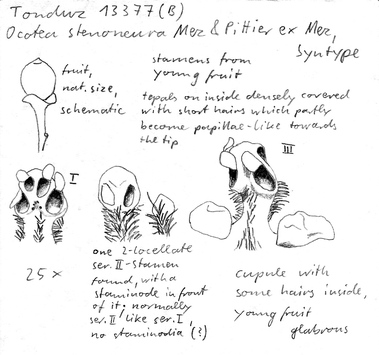 Tonduz 13377 (B)
Ocotea stenoneura Mez & Pittier ex Mez,
Syntype
fruit,
nat. size,
schematic
stamens from
young fruit
tepals on inside densely covered
with short hairs which partly
become papillae-like towards
the tip
I
III
25 x
one 2-locellate
ser. II-stamen
found, with a
staminode in front
of it; normally
ser. II like ser. I,
no staminodia (?)
cupule with
some hairs inside,
young fruit
glabrous